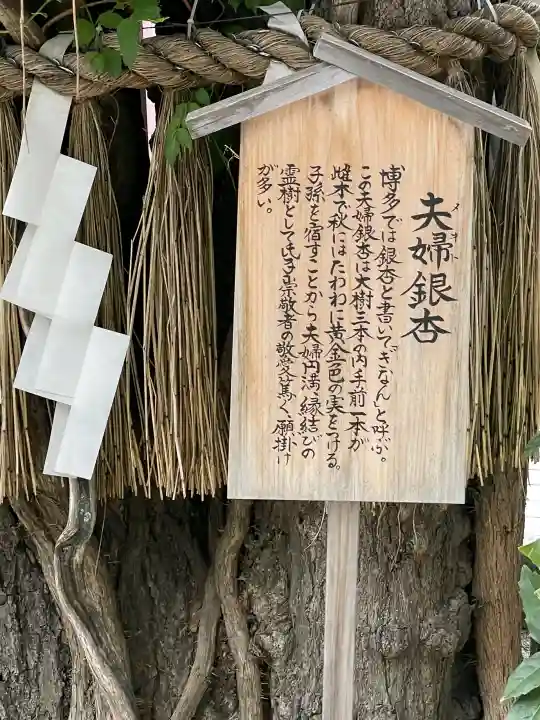 夫婦銀杏
博多では銀杏と書いて「ぎなん」と呼ぶ。
この夫婦銀杏は大樹三本の内手前一本が
雌木で秋にはたわわに黄金色の実をつける。
子孫を宿すことから夫婦円満、縁結びの
霊樹として氏子崇敬者の敬愛篤く、願掛け
が多い。